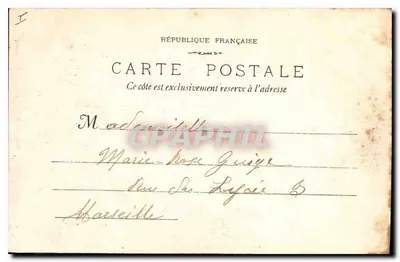 I
RÉPUBLIQUE FRANÇAISE
CARTE POSTALE
Ce côté est exclusivement réservé à l'adresse
Mademoiselle
CARAPHIL
Marie Guige
Rue du Lycée 8
Marseille